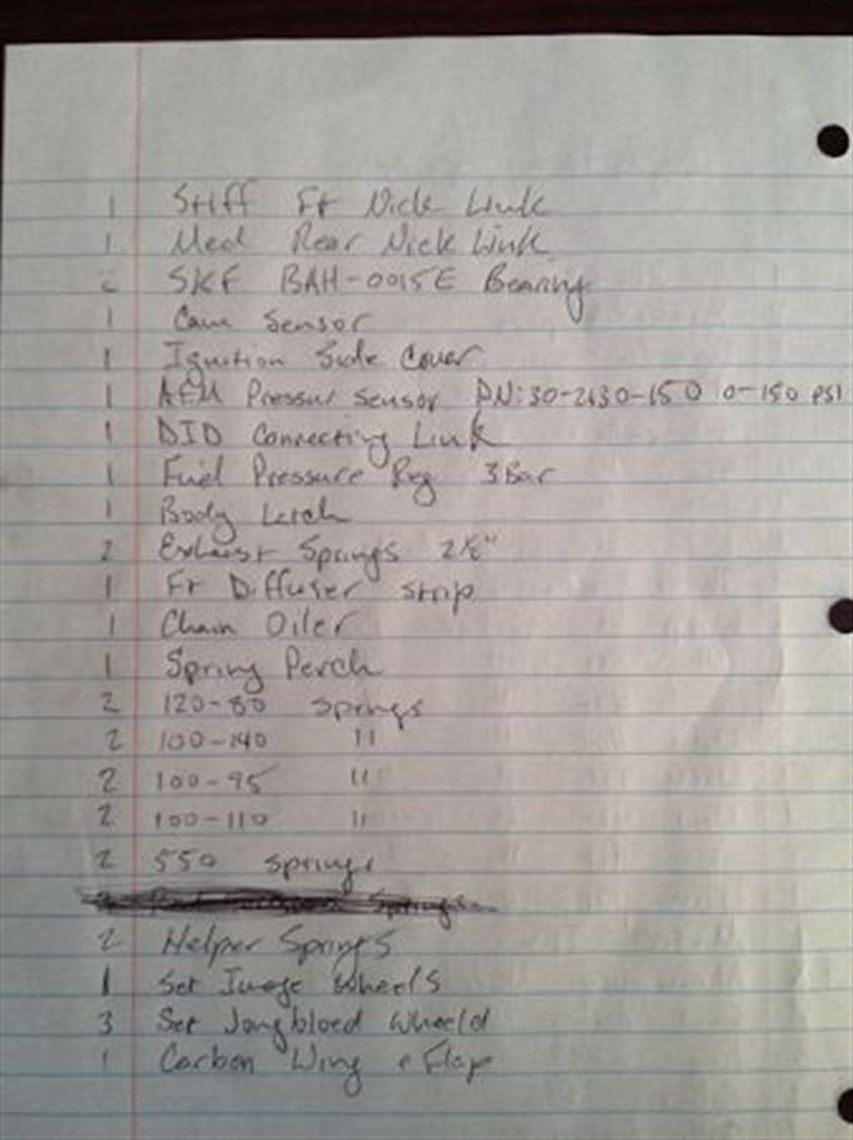 1 Stiff Ft Nick Link
1 Med Rear Nick Link
2 SKF BAH-0015E Bearing
1 Cam Sensor
1 Ignition Side Cover
1 AFM Pressur sensor PN:30-2630-150 0-150 PSI
1 DID Connecting Link
1 Fuel Pressure Reg 3Bar
1 Body
2 Exhaust Springs 2½"
1 Ft Diffuser strip
1 Chain Oiler
1 Spring Perch
2 120-80 springs
2 100-140 "
2 100-95 "
2 100-110 "
2 550 springs
Springs
2 Helper Springs
1 Set Image Wheels
3 Set Jongbloed Wheeld
1 Carbon Wing Flap